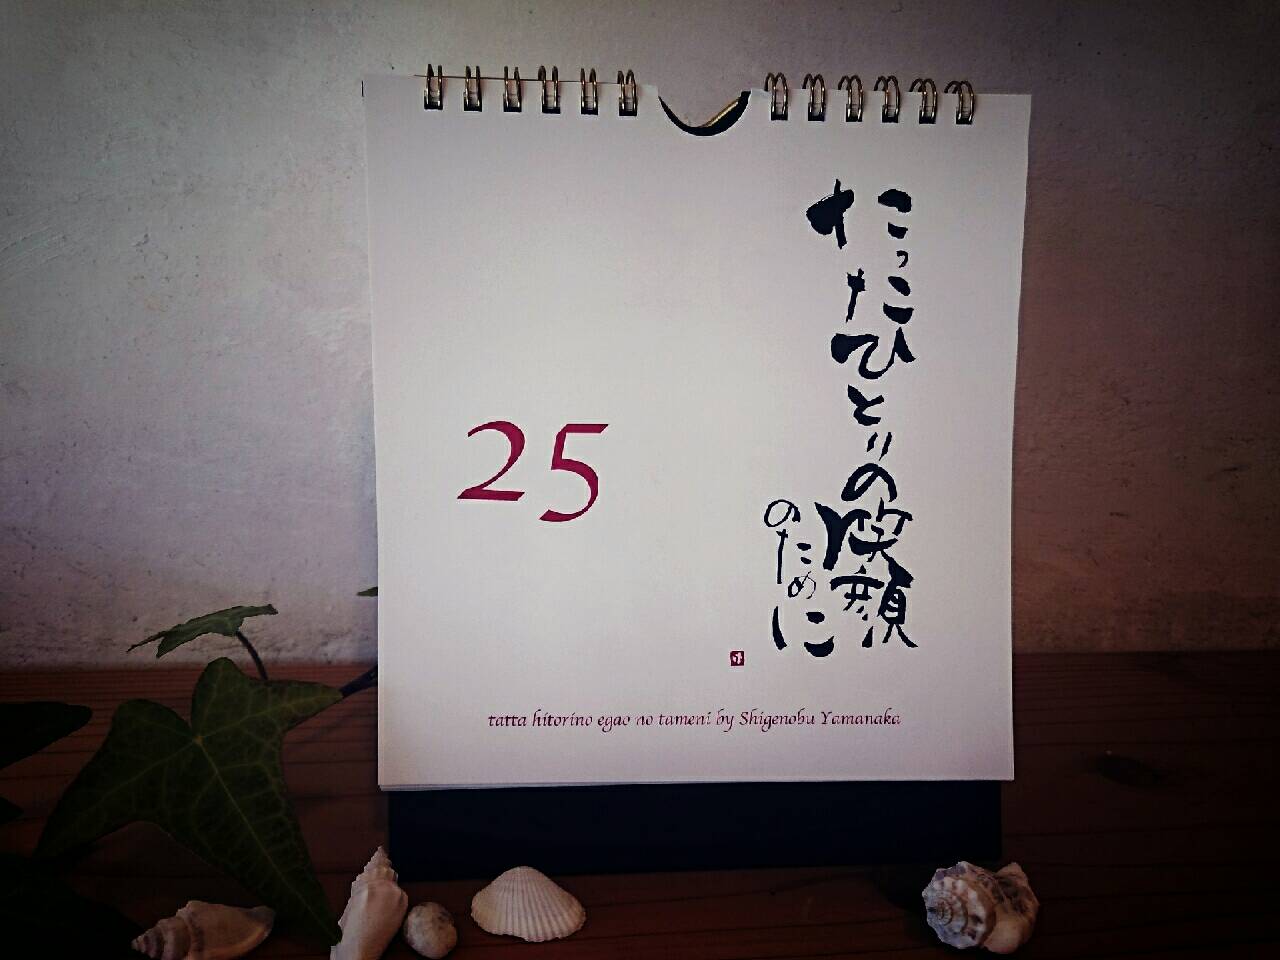 たったひとりの笑顔
のために
25
tatta hitorino egao no tameni by Shigenobu Yamanaka